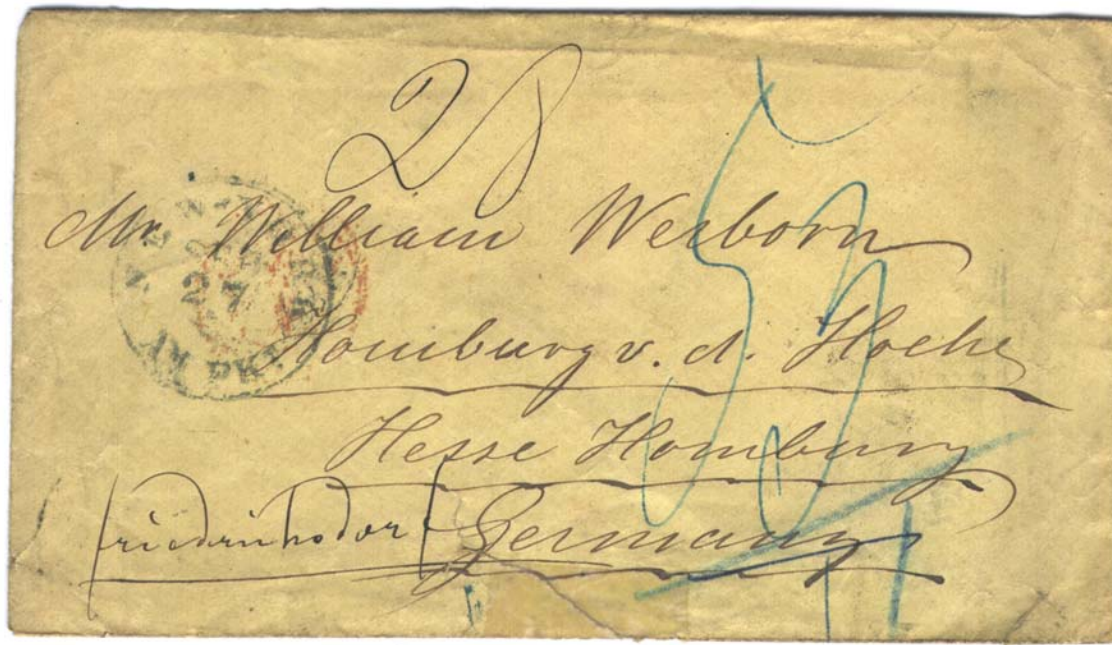 28
Mr. William Weiborn
Homburg v. d. Hoehe
Hesse Homburg
Friedrichsdorf Germany
27
AM. PKT.
53